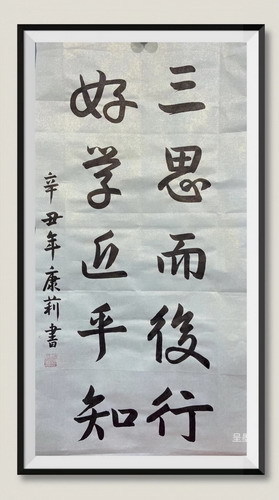 三思而後行
好学近乎知
辛丑年康莉書